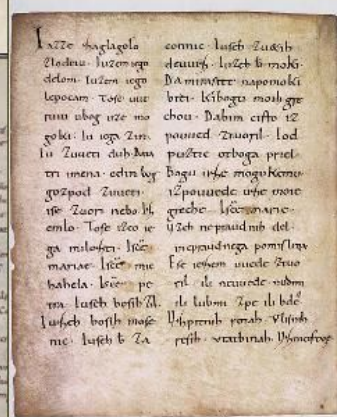 Iazze zaglagolo
zlodeiu. Iuzem iego
delom. Iuzem iego
lepocam. Tose uue
ruiu ubog uze mo
goki. Iu iega zin.
Iu zuueti duh. Data
tri imena. edin bog
gozpod zuueti.
ise zuori nebo. Iz
emlo. Tose izco ie
ga milozti. Isce.
mariae. Isce. mic
hahela. Isce. pe
tra. Iusech bosih zil.
Iusech bosih mose
nic. Iusech b. za
connic. Iusech zuetih
deuuiz. Iuzech b. moki.
Da mi raste napomoki
biti. Kibogu moih gre
chou. Dabim cisto iz
pouued ztuoril. Iod
puztic otboga priel.
Bogu uze mogokemu
izpouuede use moie
greche. Isce marie.
uzeh nepraudnih del.
inepraudnega pomislena
Ese iesem uuede ztuo
ril. ili neuuede. nudmi
ili lubmi zpe ili bde.
Uzpitnih rotah. Vlisnih
resih. vtatbinah. Uznicistue